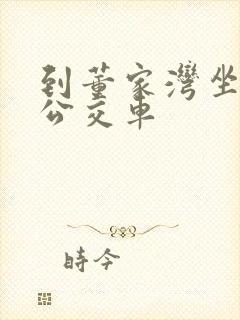 到董家灣坐
公交車
時今